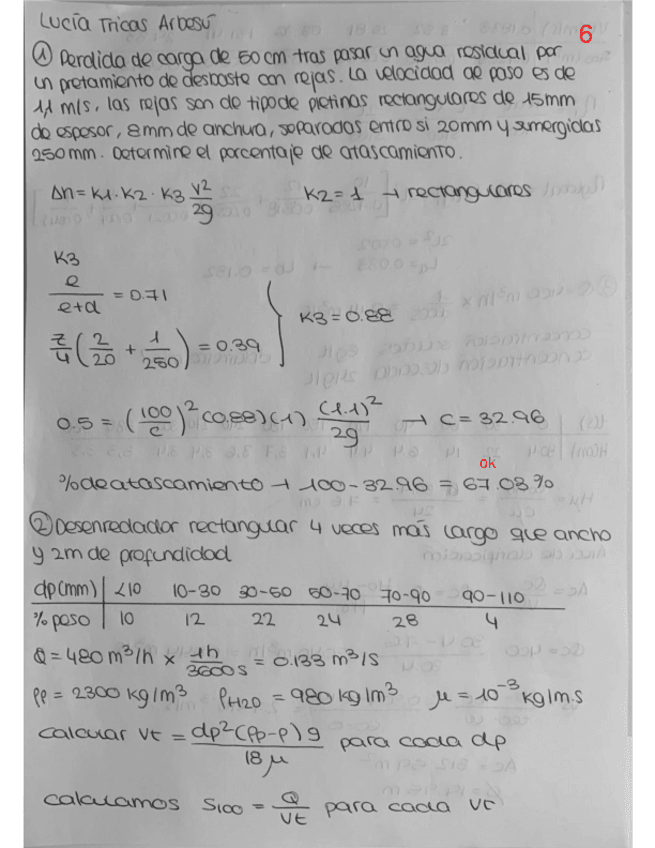 Lucía Tricas Arbesú
6
① Perdida de carga de 50 cm tras pasar un agua residual por
un pretamiento de desbaste con rejas. La velocidad de paso es de
1,1 m/s, las rejas son de tipo de pletinas rectangulares de 15mm
de espesor, 8mm de anchura, separadas entre si 20mm y sumergidas
250mm. Determine el porcentaje de atascamiento.
Δh = K1 · K2 · K3 V²/2g K2 = 1 → rectangulares
K3
e/(e+d) = 0.71
z/4 (2/20 + 1/250) = 0.39 } K3 = 0.88
0.5 = (100/C)² (0.88)(1) (1.1)²/2g → C = 32.96
ok
% de atascamiento → 100 - 32.96 = 67.03 %
② Desenredador rectangular 4 veces más largo que ancho
y 2m de profundidad
dp(mm) <10 10-30 30-50 50-70 70-90 90-110
% peso 10 12 22 24 28 4
Q = 480 m³/h × 1h/3600s = 0.133 m³/s
ρp = 2300 kg/m³ ρH2O = 980 kg/m³ μ = 10⁻³ kg/m.s
calcular Vt = dp²(ρp-ρ)g/18μ para cada dp
calculamos S100 = Q/Vt para cada Vt